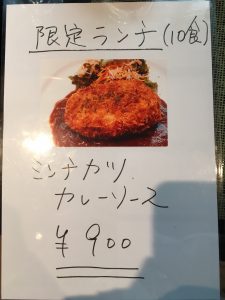 限定ランチ(10食)
ミンチカツ
カレーソース
¥900